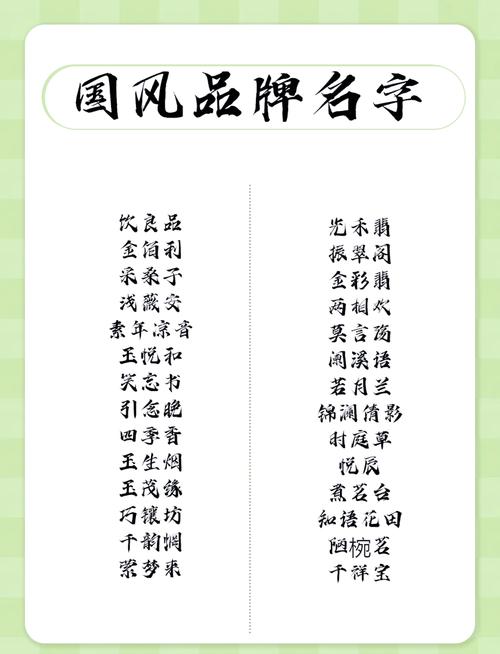 国风品牌名字
饮良品
金佰利
采桑子
浅薇安
素年凉音
玉悦和
笑忘书
引念晚
四季香
玉生烟
玉茂缘
巧镶坊
千韵惆
萦梦来
光禾翡
振翠阁
金彩翡
两相欢
莫言殇
阑溪语
若月兰
锦澜倩影
时庭草
悦辰
煮茗台
知语花田
陋椀茗
千祥宝